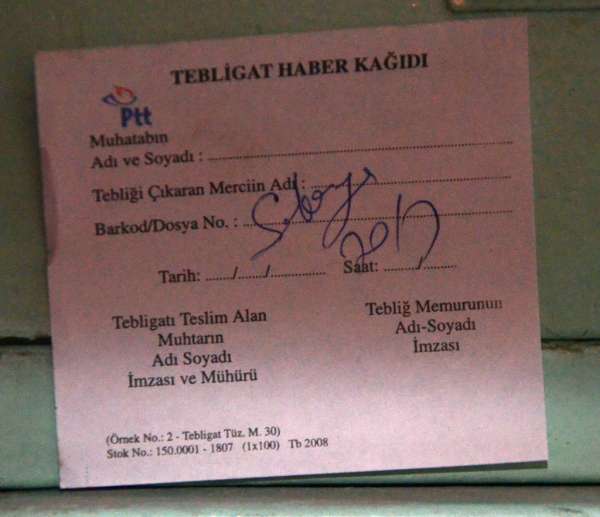 TEBLİGAT HABER KAĞIDI
Ptt
Muhatabın
Adı ve Soyadı : ..........
Tebliği Çıkaran Merciin Adı : ..........
Barkod/Dosya No. : ..........
2017
Tarih: ....../....../............ Saat: ......../........
Tebligatı Teslim Alan
Muhtarın
Adı Soyadı
İmzası ve Mühürü
Tebliğ Memurunun
Adı-Soyadı
İmzası
(Örnek No.: 2 - Tebligat Tüz. M. 30)
Stok No.: 150.0001 - 1807 (1x100) Tb 2008